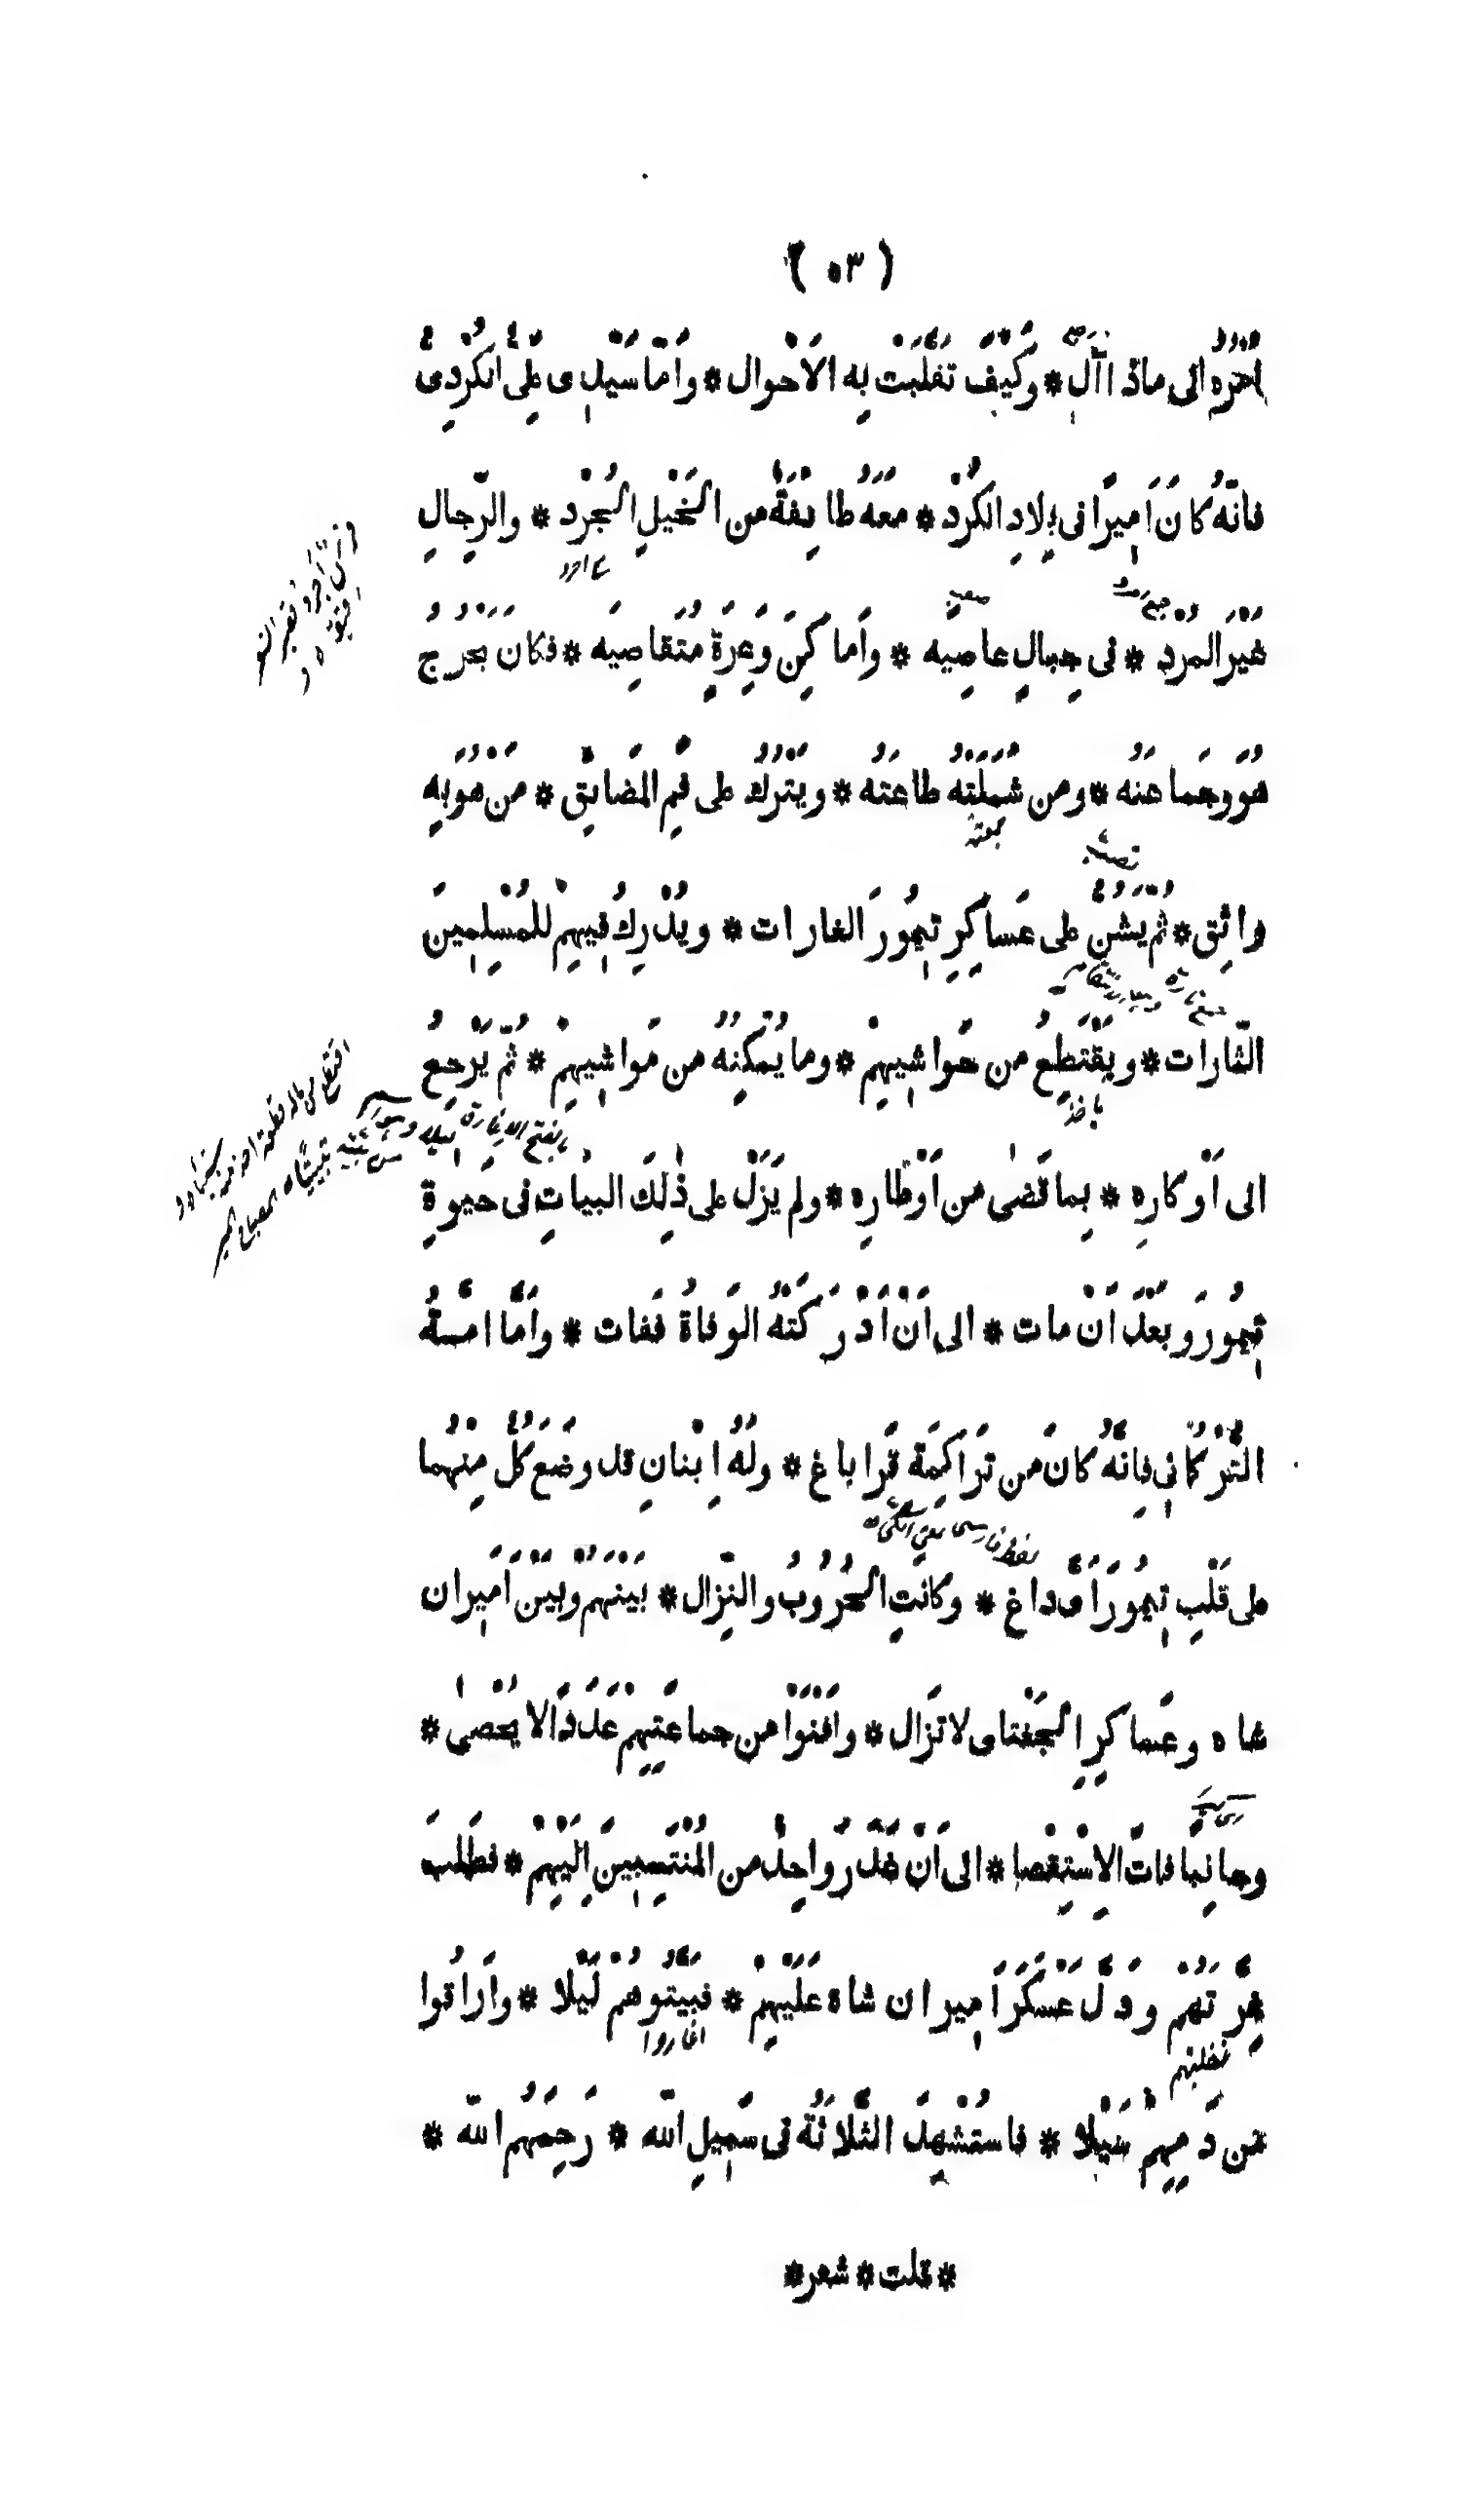 ( ٥٣ )
اَمْرُهُ الى ماذا اٰلَ * وَكَيْفَ تَقَلَّبَتْ بِه الاَحْوال * وَاَمّا سَيْدِى عَلِىُّ الكُرْدِىُّ
فاِنَّهُ كانَ اَمِيرًا فى بِلادِ الكُرْد * مَعَهُ طائِفَةٌ من الخَيْلِ الجُرْد * والرِّجالِ
غَيْرَ المُرْد * فى جِبالٍ عاصِيَه * واَماكِنَ وَعِرَةٍ مُتَقاصِيَه * فكانَ يَخْرُجُ
هُوَ وجَماعَتُه * ومن شَمِلَتْهُ طاعَتُه * ويَتْرُكُ على فَمِ المَضايِق * مَنْ هُوَ بِه
واثِق * ثُمَّ يَشُنُّ على عَساكِرِ تِيمُورَ الغارات * ويُدْرِكُ فِيهِمْ للمُسْلِمِينَ
الثّارات * ويَقْتَطِعُ من حَواشِيهِمْ * وما يُمْكِنُهُ من مَواشِيهِمْ * ثُمَّ يَرْجِعُ
الى اَوْكارِه * بِما قَضٰى من اَوْطارِه * ولم يَزَلْ على ذٰلِكَ البَياتِ فى حَيٰوةِ
تِيمُورَ وبَعْدَ اَنْ مات * الى اَنْ اَدْرَكَتْهُ الوَفاةُ فَفات * واَمَّا امَّسةُ
التُّرْكُمانِى فاِنَّهُ كانَ من تَراكِمَة قَراباغ * ولَهُ اِبْنانِ قد وضَعَ كُلٌّ مِنْهُما
على قَلْبِ تِيمُورَ اَىَّ داغ * وكانَتِ الحُرُوبُ والنِّزال * بَيْنَهُمْ وبَيْنَ اَمِيران
شاه وعَساكِرِ الجَغْتاى لا تَزال * واَفْنَوْا من جماعَتِهِمْ عَدَدًا لا يُحْصٰى *
وجانِبًا فاتَ الاِسْتِقْصا * الى اَنْ غَدَرَ واحِدٌ من المُنْتَسِبِينَ اِلَيْهِمْ * فطَلَبَ
غِرَّتَهُمْ ودَلَّ عَسْكَرَ اَمِيران شاه عَلَيْهِمْ * فبَيَّتُوهُمْ لَيْلا * واَراقُوا
اغاروا
غفلتهم
من دَمِهِمْ سَيْلا * فاسْتُشْهِدَ الثَّلاثَةُ فى سَبِيلِ الله * رَحِمَهُمُ الله *
* قلت * شعر *